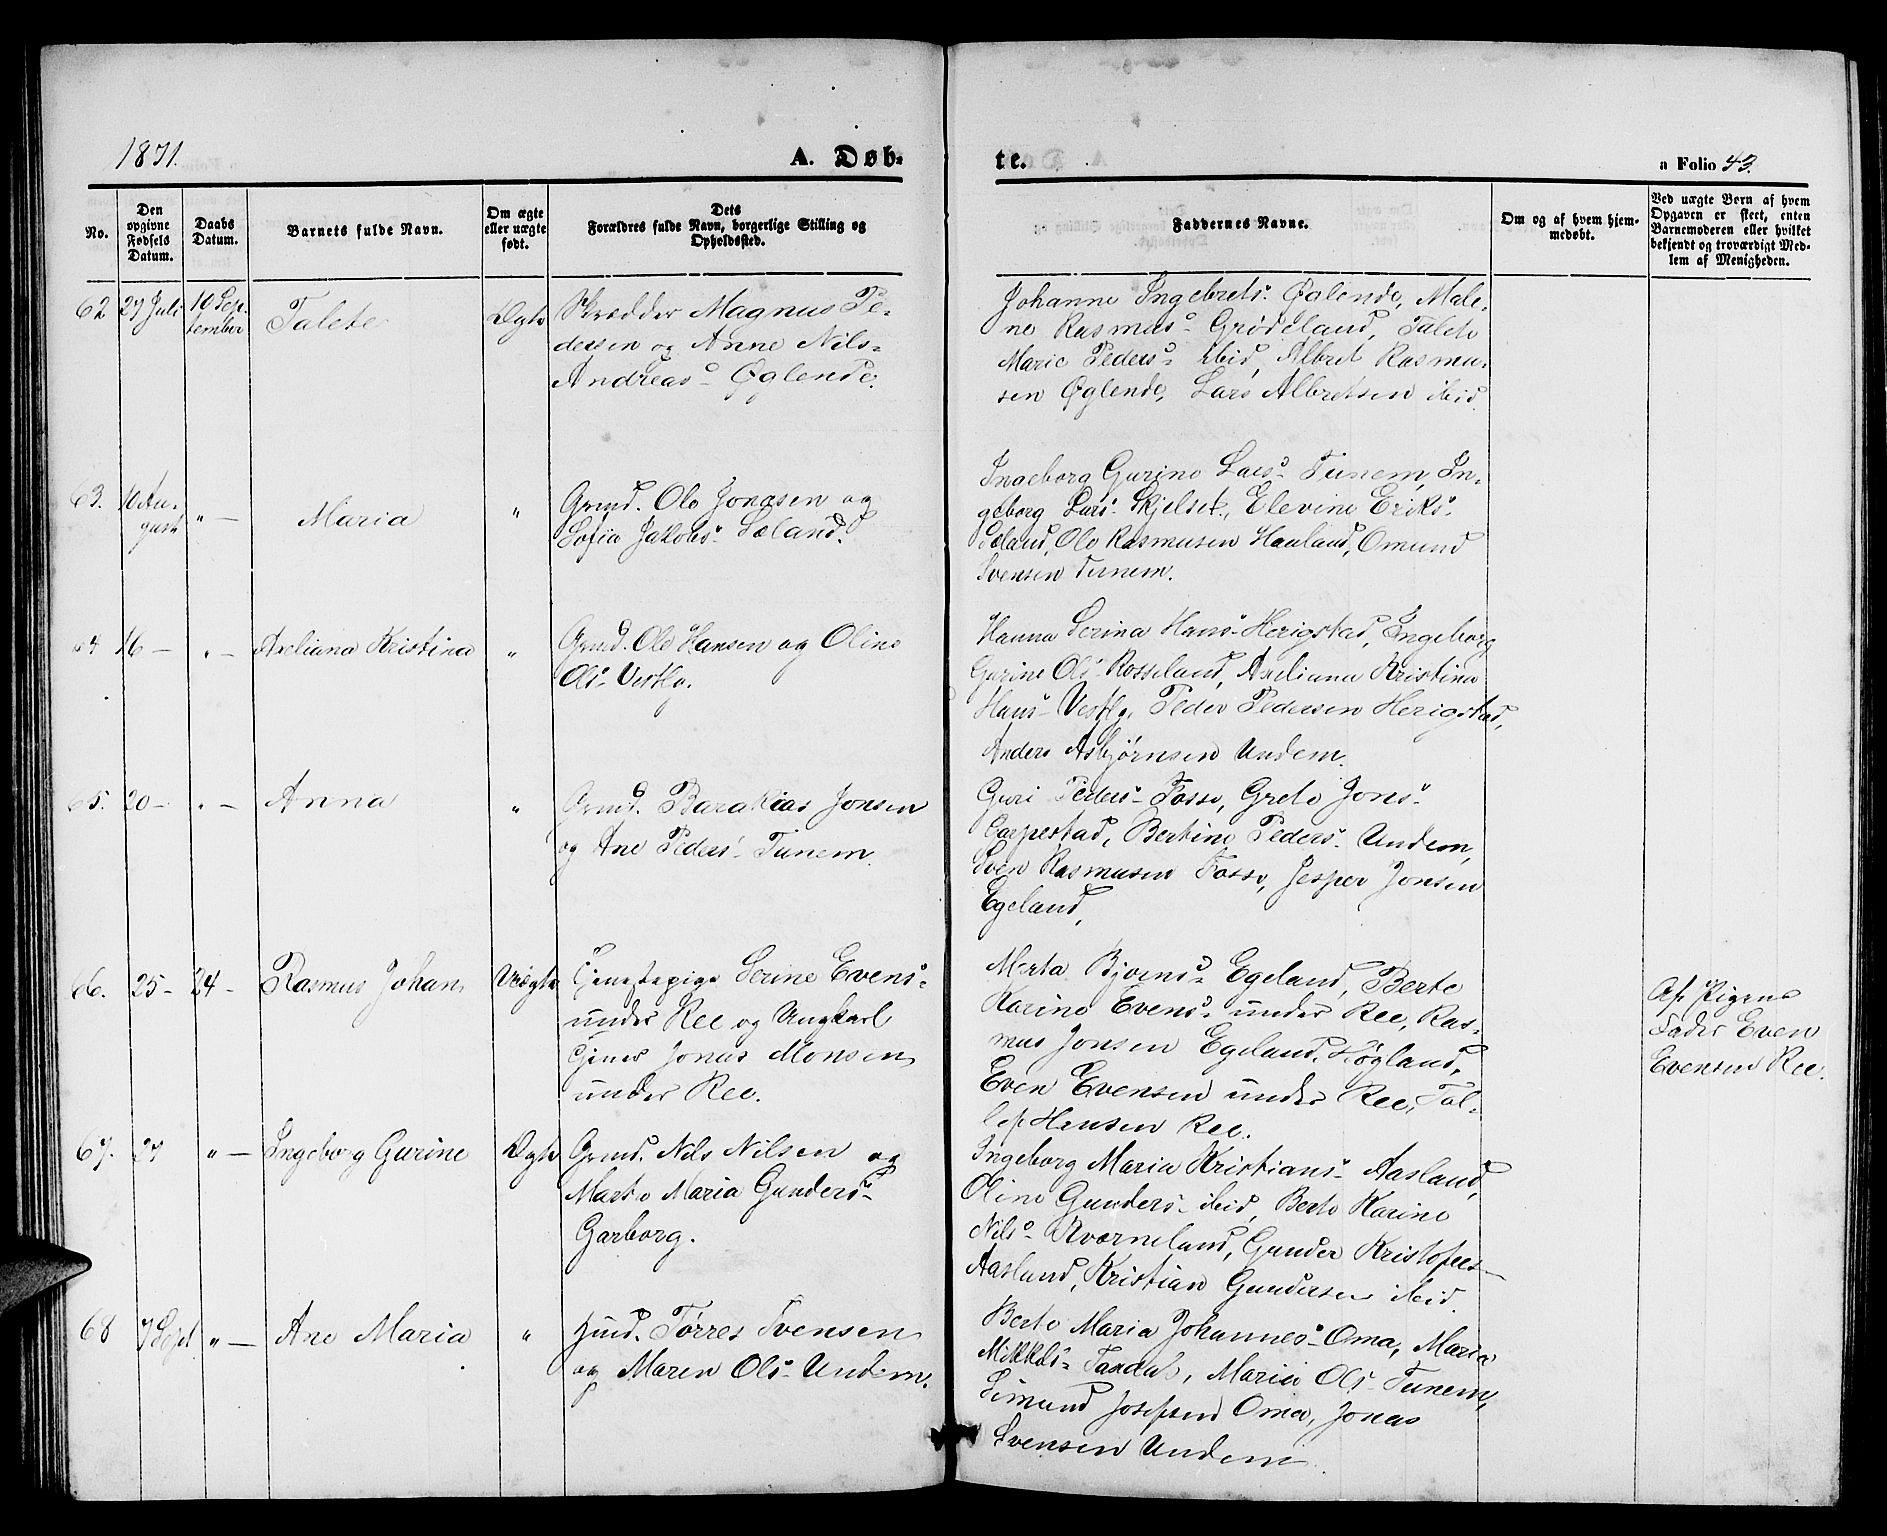 1871.
A. Døb-
te.
a Folio 43.
No.
Den opgivne Fødsels Datum.
Daabs Datum.
Barnets fulde Navn.
Om ægte eller uægte født.
Dets Forældres fulde Navn, borgerlige Stilling og Opholdssted.
Faddernes Navne.
Om og af hvem hjemmedøbt.
Ved uægte Born af hvem Opgaven er skeet, enten Barnemoderen eller hvilket bekjendt og troværdigt Medlem af Menigheden.
62 27 Juli 10 September Talete Ægte
Skrædder Magnus Pe-
dersen og Anne Nils-
Andreasd- Øglende.
Johanne Ingebretsd. Øglende, Male-
ne Rasmusd- Grødeland, Talete
Marie Pedersd- ibid, Albret Rasmu-
sen Øglende, Lars Albretsen ibid.
63. 10 August " — Maria "
Grmd. Ole Jonasen og
Sofia Jakobsd. Sæland.
Ingeborg Gurine Larsd- Tunem, In-
geborg Larsd. Skjelset, Elevine Eriksd.
Sæland, Ole Rasmusen Hauland, Omund
Svensen Tunem.
64 16 — " — Axeliana Kristina "
Grmd. Ole Hansen og Oline
Olsd- Vestly.
Hanna Serina Hansd- Herigstad, Ingeborg
Gurine Olsd- Rosseland, Axeliana Kristina
Hansd- Vestly, Peder Pedersen Herigstad,
Anders Asbjørnsen Undem.
65. 20 — " — Anna "
Grmd. Barakias Jonsen
og Ane Pedersd- Tunem.
Guri Pedersd- Fosse, Grete Jonsd-
Garpestad, Bertine Pedersd. Undem,
Sven Rasmusen Fosse, Jesper Jonsen
Egeland,
66. 25 — 24 — Rasmus Johan Uægte
Tjenestepige Serine Evensd-
under Ree og Ungkarl
Tjener Jonas Monsen
under Ree.
Merta Bjoensd- Egeland, Berte
Karine Evensd- under Ree, Ras-
mus Jonsen Egeland, Høgland,
Even Evensen under Ree, Tol-
lef Hansen Ree.
Af Pigens
Fader Even
Evensen Ree.
67. 27 " — Ingeborg Gurine Ægte
Grmd. Nils Nilsen og
Marte Maria Gundersd-
Garborg.
Ingeborg Maria Kristiansd- Aasland,
Oline Gundersd- ibid, Berte Karine
Nilsd- Kværneland, Gunder Kristofers-
Aasland, Kristian Gundersen ibid.
68 7 Sept " — Ane Maria "
Hmd. Tørres Svensen
og Maren Olsd- Undem.
Berte Maria Johannesd- Oma, Maria
Mikkelsd- Taxdal, Maria Olsd- Tunem,
Simund Josefsen Oma, Jonas
Svensen Undem.